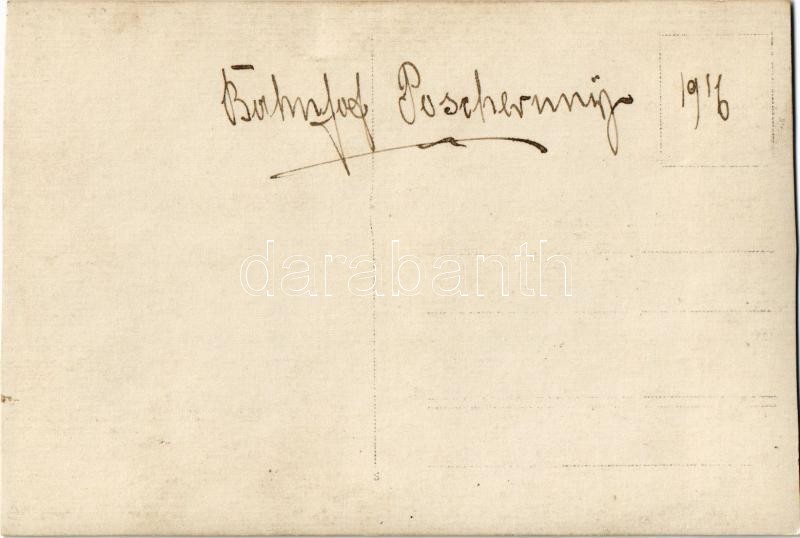 Bahnhof Poscherunÿ 1916
darabanth